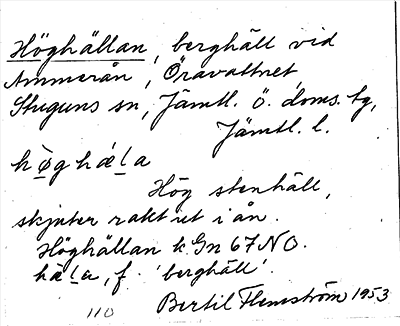 Höghällan, berghäll vid
Ammerån, Öravattnet
Stuguns sn, Jämtl. ö. doms. tg,
Jämtl. l.
hø̀ghǽla
Hög stenhäll,
skjuter rakt ut i ån.
Höghällan k Gn 67 NO.
hæ̀la, f. 'berghäll'.
110 Bertil Flemström 1953